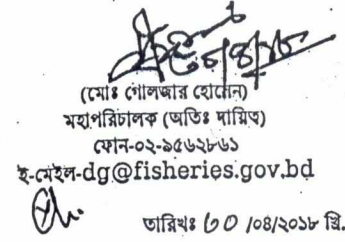 (মোঃ গোলজার হোসেন)
মহাপরিচালক (অতিঃ দায়িত্ব)
ফোন-০২-৯৫৬২৮৬১
ই-মেইল-dg@fisheries.gov.bd
তারিখঃ ৩০ /০৪/২০১৮ খ্রি.